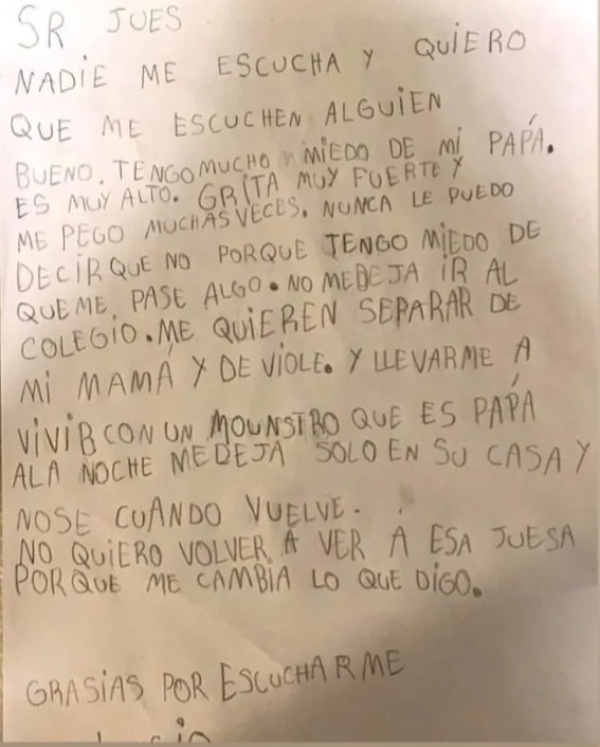 SR JUES
NADIE ME ESCUCHA Y QUIERO
QUE ME ESCUCHEN ALGUIEN
BUENO. TENGO MUCHO MIEDO DE MÍ PAPÁ.
ES MUY ALTO. GRITA MUY FUERTE Y
ME PEGO MUCHAS VECES. NUNCA LE PUEDO
DECIR QUE NO PORQUE TENGO MIEDO DE
QUE ME PASE ALGO. NO ME DEJA IR AL
COLEGIO. ME QUIEREN SEPARAR DE
MI MAMÁ Y DE VIOLE. Y LLEVARME A
VIVIR CON UN MOUNSTRO QUE ES PAPÁ
ALA NOCHE ME DEJA SOLO EN SU CASA Y
NOSE CUANDO VUELVE.
NO QUIERO VOLVER A VER A ESA JUESA
PORQUE ME CAMBIA LO QUE DIGO.
GRASIAS POR ESCUCHARME